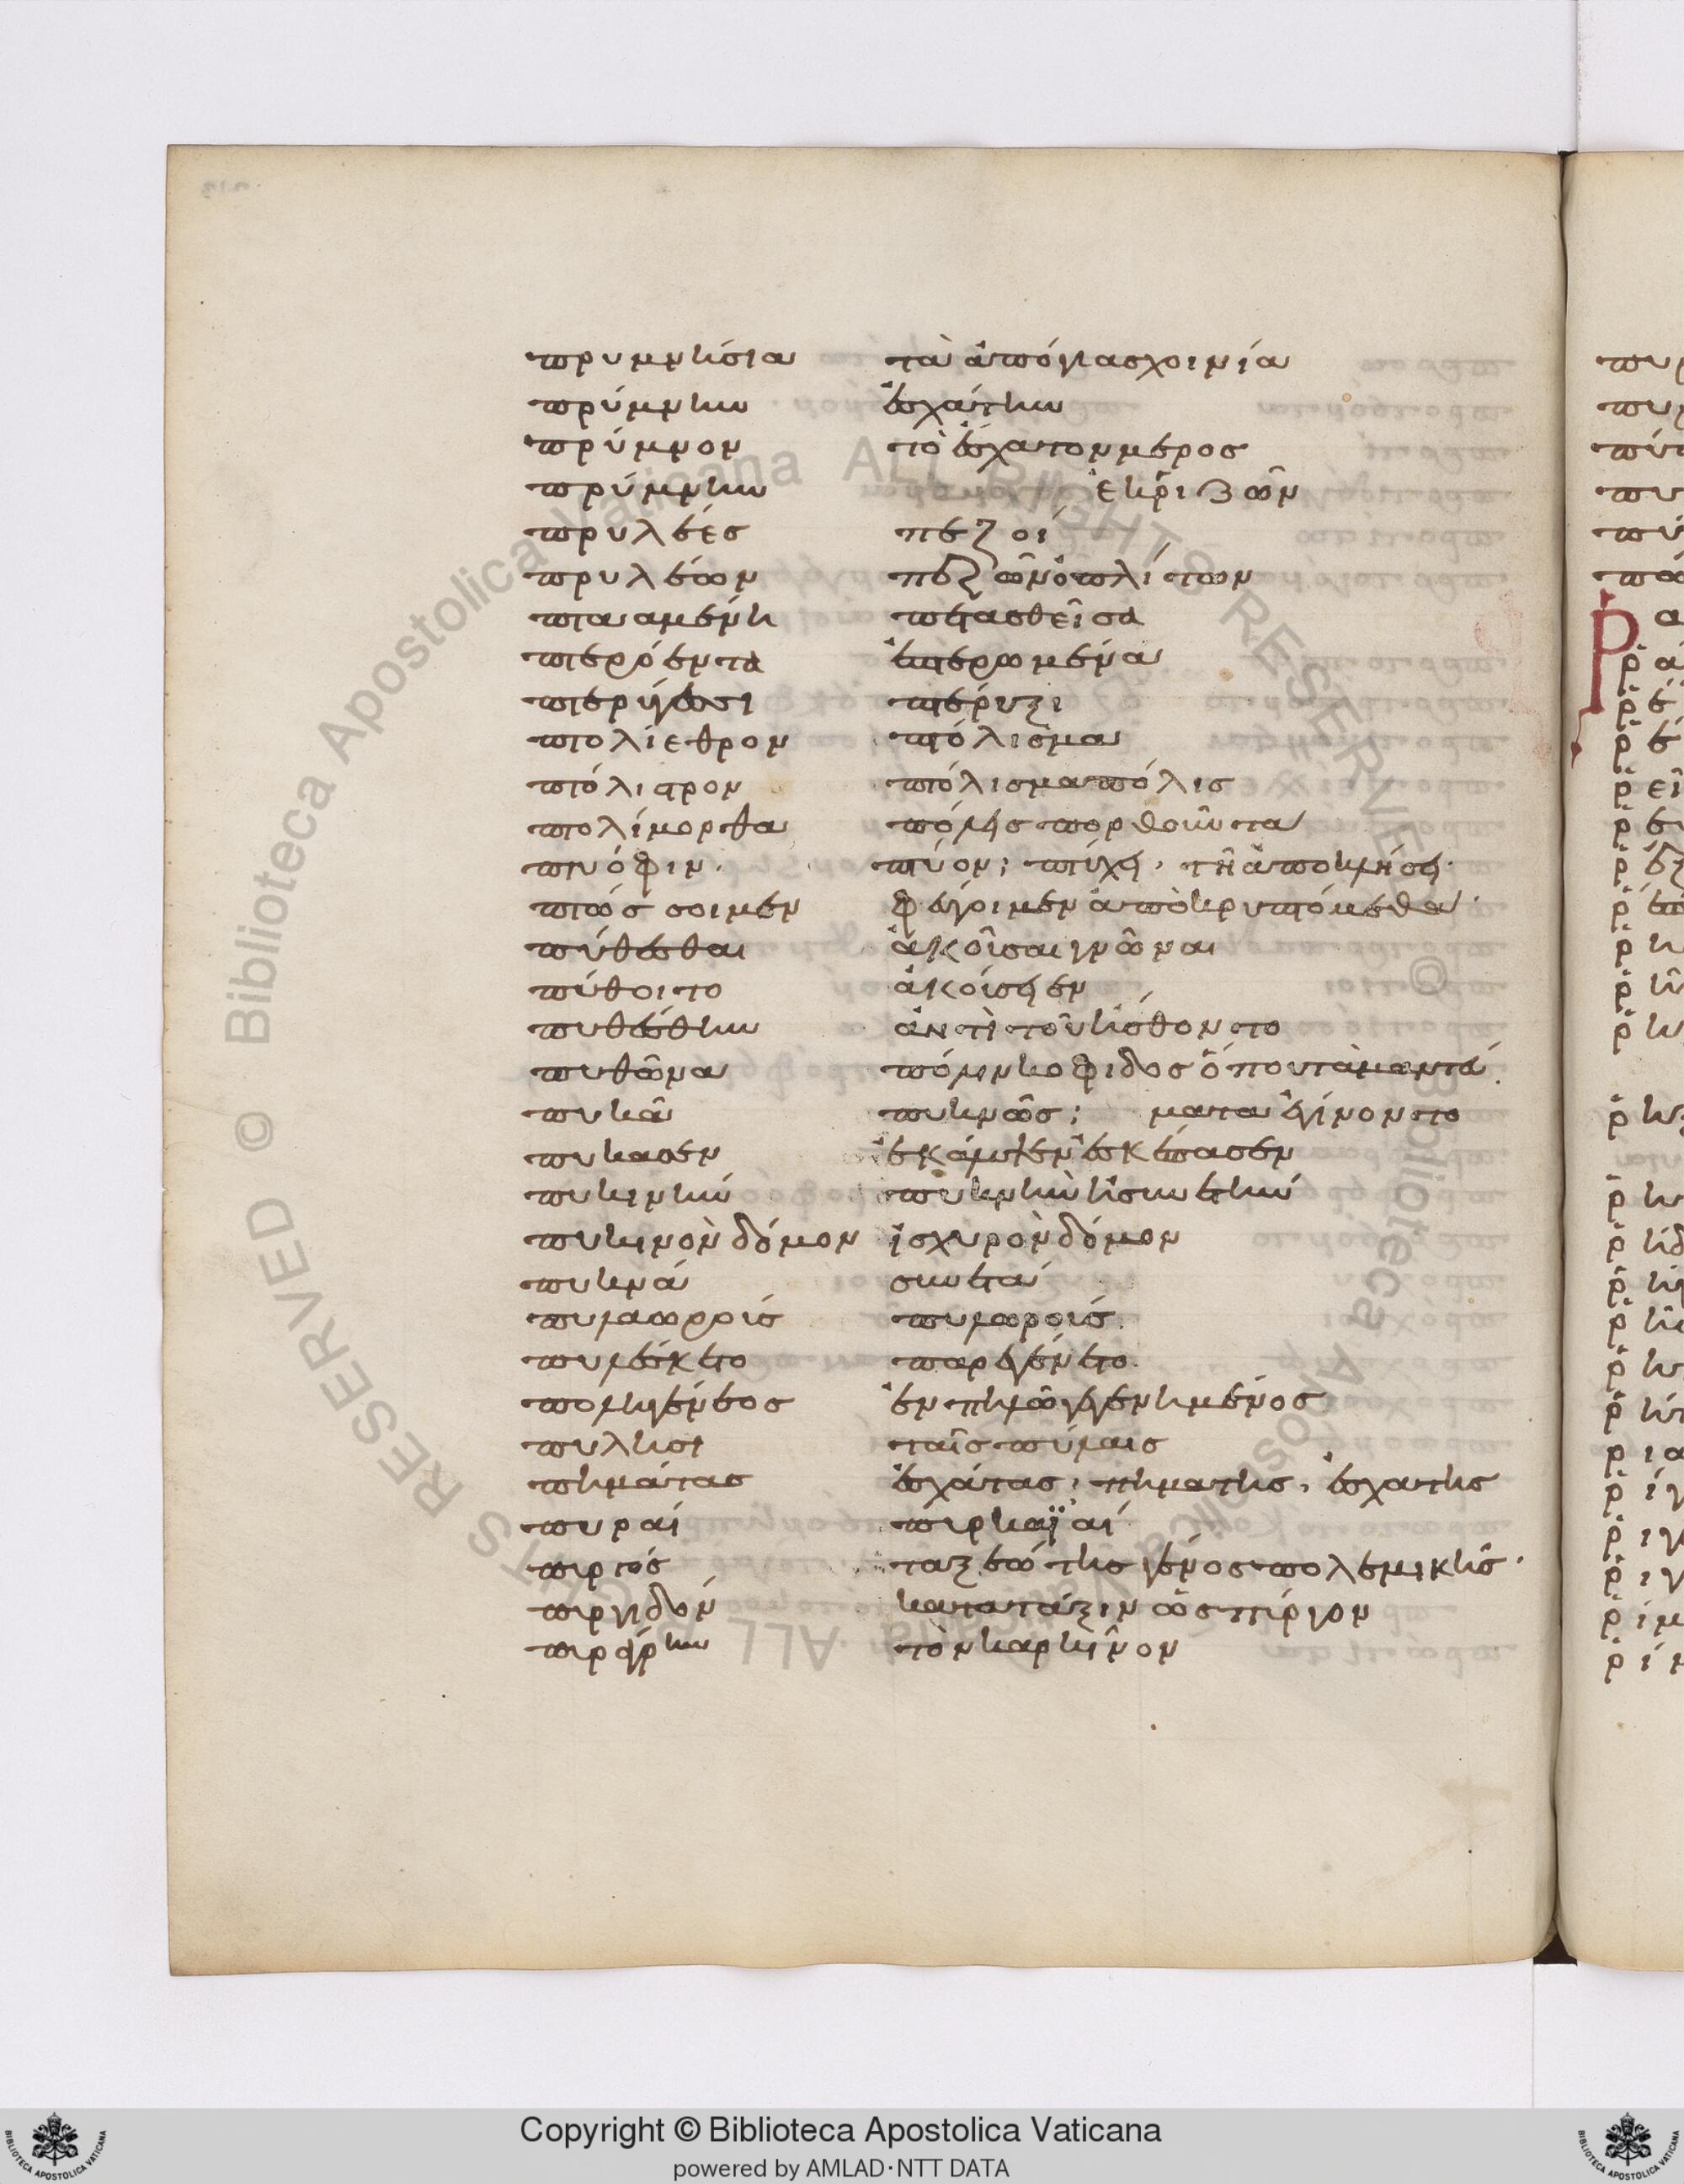 πρυμνήσια τὰ ἀπόγιασχοινία
πρύμνην ἐσχάτην
πρύμνον τὸ ἔσχατον μερος
πρύμνην ἐκριζῶν
πρυλέες πεζοί
πρυλέων πεζῶν ὁπλίτων
πταμένη πετασθεῖσα
πτερόεντα ἐπτερωμένα
πτερύγεσι πτέρυξι
πτολίεθρον πτόλισμα
πτόλιτρον πτόλισμα πόλις
πτολίπορθα πόλεις πορθοῦντα
πτυόφιν πτύον; πτύχει, τῆ ἀποκλήσει
πτώσσοιμεν φεύγοιμεν ἀπὸκρυπτόμεθα
πύθεσθαι ἀκοῦσαι γνῶναι
πύθοιτο ἀκούσειεν
πυθέσθην ἀντὶ τοῦ ἤσθοντο
πυθῶνα πόλιν κοφιδος ὅπου τὰ μαντεύ
πυκᾶ πυκνῶς; ματα ἐγίνοντο
πυκασεν ἐκάλυψεν ἐσκέπασεν
πυκινήν πυκνὴν ἢ συνετήν
πυκινὸν δόμον ἰσχυρὸν δόμον
πυκνά συνετά
πυλαωροίς πυλωροίς
πυλέκετο παρεγένετο
πυληγένεος ἐν πύλῳ γεγενημένος
πυλησι ταῖς πύλαις
πημάτας ἐσχάτας, πηματης, ἐσχατης
πυραί πυρκαϊαί
πυργός ταξεώς της γένος πολεμικῆς
πυργιδόν κατατάξιν ὡς πύργον
τὸν καρκῖνον
Copyright © Biblioteca Apostolica Vaticana
powered by AMLAD·NTT DATA